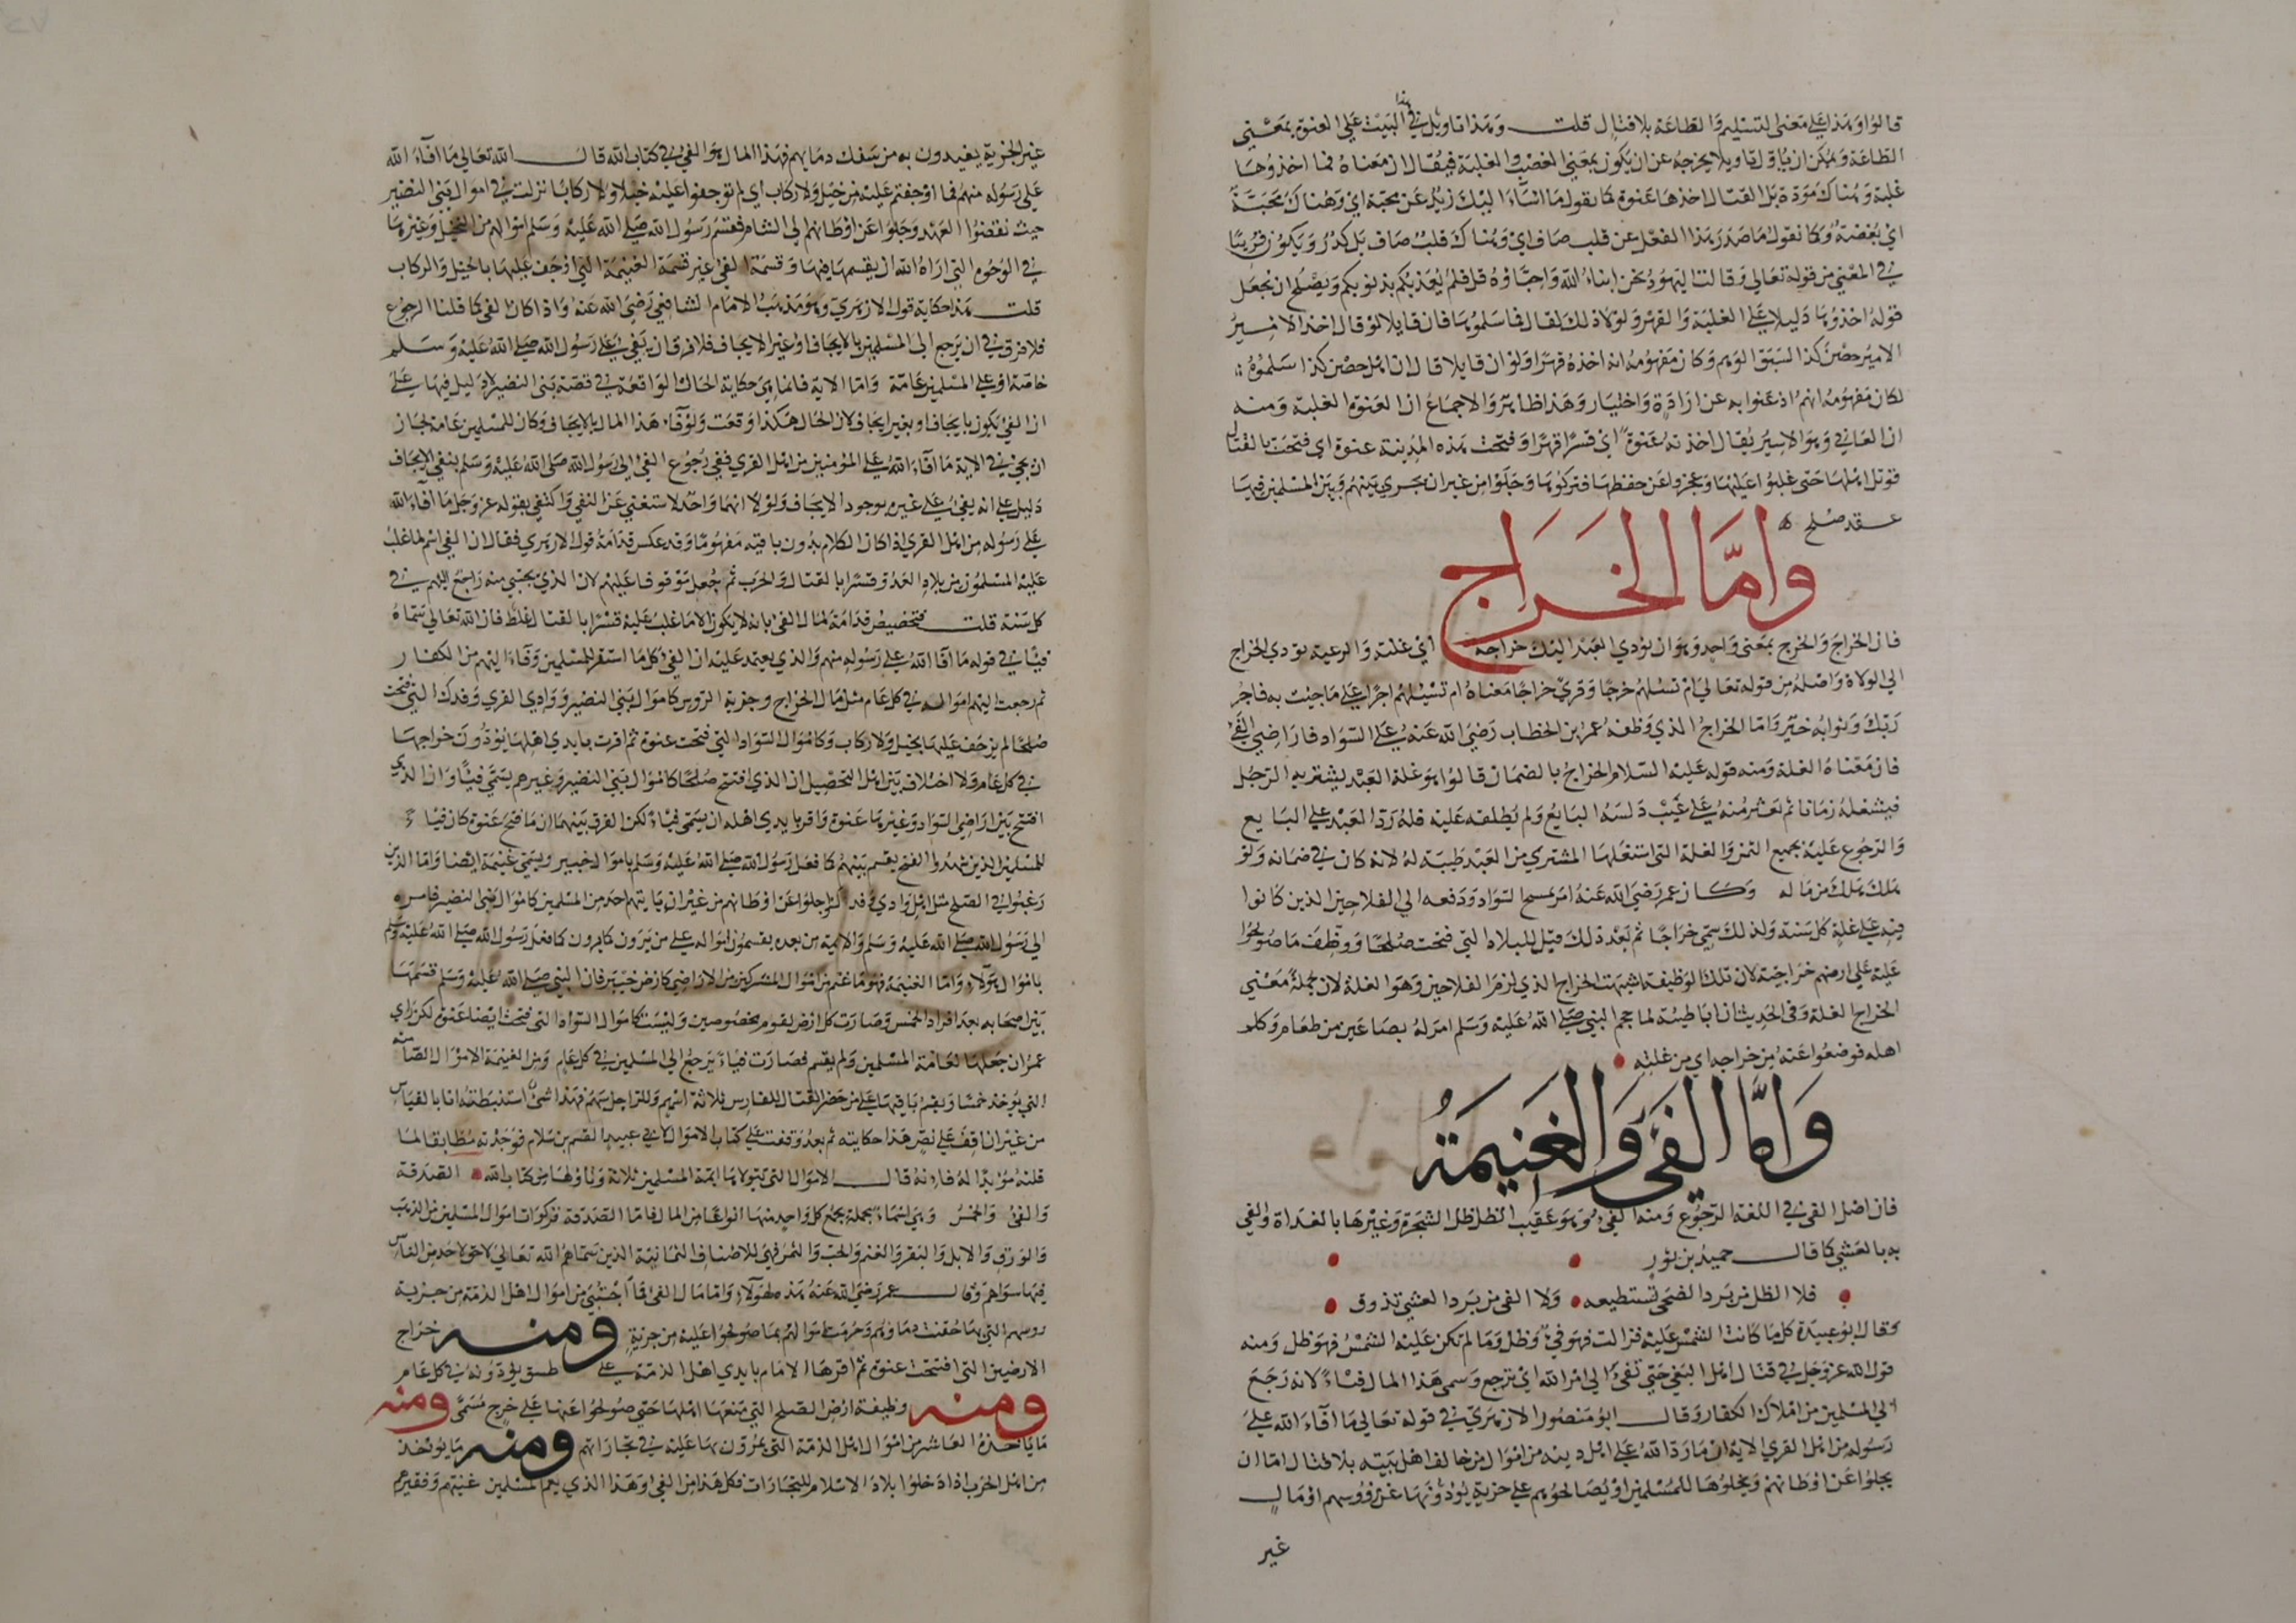 قالوا وهذا على معنى التسليم والطاعة بلا قتال قلت وهذا تاويل في هذا البيت على العنوة بمعنى
الطاعة ويمكن ان يأول تاويلا يخرجه عن ان يكون بمعنى الغصب والغلبة فيقال ان معناه فما اخذوها
غلبة وهناك مودة بل القتال اخذها عنوة كما يقول ما اساء اليك زيد عن محبة اي وهناك محبة
اي بغضة وكما نقول ما صدر هذا الفعل عن قلب صاف اي وهناك قلب صاف بل كدر ويكون قريبا
في المعنى من قوله تعالى وقالت اليهود نحن ابناء الله واحباؤه قل فلم يعذبكم بذنوبكم ويصلح ان نجعل
قوله اخذوها دليلا على الغلبة والقهر ولولا ذلك لقال فما سلموها فان قايلا لو قال اخذ الامير
الامير حصن كذا لسبق الوهم وكان مفهومه انه اخذه قهرا ولو ان قايلا قال ان اهل حصن كذا سلموه
لكان مفهومه انهم اذعنوا به عن ارادة واختيار وهذا ظاهر والاجماع ان العنوة الغلبة ومنه
ان العاني وهو الاسير يقال اخذته عنوة اي قسرا وقهرا وفتحت هذه المدينة عنوة اي فتحت بالقتال
قوتل اهلها حتى غلبوا عليها وعجزوا عن حفظها فتركوها وجلوا من غير ان يجري بينهم وبين المسلمين فيها
عقد صلح
واما الخراج
فان الخراج والخرج بمعنى واحد وهو ان يؤدي العبد اليك خراجه اي غلته والرعية تؤدي الخراج
الى الولاة واصله من قوله تعالى ام تسئلهم خرجا وقري خراجا معناه ام تسئلهم اجرا على ما جئت به فاجر
ربك وثوابه خير واما الخراج الذي وظفه عمر بن الخطاب رضي الله عنه على السواد فاراضي الفي
فان معناه الغلة ومنه قوله عليه السلام الخراج بالضمان قالوا هو غلة العبد يشتريه الرجل
فيستغله زمانا ثم يعثر منه على عيب دلسه البايع ولم يطلعه عليه فله رد العبد على البايع
والرجوع عليه بجميع الثمن والغلة التي استغلها المشتري من العبد طيبة له لانه كان في ضمانه ولو
هلك هلك من ماله وكان عمر رضي الله عنه امر بمسح السواد ودفعه الى الفلاحين الذين كانوا
فيه على غلة كل سنة ولذلك سمي خراجا ثم بعد ذلك قيل للبلاد التي فتحت صلحا ووظف ما صولحوا
عليه على ارضهم خراجية لان تلك الوظيفة اشبهت الخراج الذي لزم الفلاحين وهو الغلة لان جملة معنى
الخراج الغلة وفي الحديث ان ابا طيبة لما حجم النبي صلى الله عليه وسلم امر له بصاعين من طعام وكلم
اهله فوضعوا عنه من خراجه اي من غلته
واما الفيء والغنيمة
فان اصل الفي في اللغة الرجوع ومنه الفي وهو عقيب الظل ظل الشجرة وغيرها بالغداة والفي
به بالعشي كما قال حميد بن ثور
فلا الظل من برد الضحى تستطيعه ولا الفي من برد العشي تذوق
وقال ابو عبيدة كلما كانت الشمس عليه فزالت فهو في وظل وما لم تكن عليه الشمس فهو ظل ومنه
قول الله عز وجل في قتال اهل البغي حتى تفيء الى امر الله اي ترجع وسمى هذا المال فياء لانه رجع
الى المسلمين من املاك الكفار وقال ابو منصور الازهري في قوله تعالى ما افاء الله على
رسوله من اهل القرى الاية ان ما رد الله على اهل دينه من اموال من خالف اهل بيته بلا قتال اما ان
يجلوا عن اوطانهم ويخلوها للمسلمين او يصالحوهم على جزية يؤدونها عن رؤوسهم او مال
غير
غير الجزية يفتدون به من سفك دمايهم فهذا المال هو الفي في كتاب الله قال الله تعالى ما افاء الله
على رسوله منهم فما اوجفتم عليه من خيل ولا ركاب اي لم توجفوا عليه خيلا ولا ركابا نزلت في اموال بني النضير
حيث نقضوا العهد وجلوا عن اوطانهم الى الشام فقسم رسول الله صلى الله عليه وسلم اموالهم من النخيل وغيرها
في الوجوه التي اراه الله ان يقسمها فيها وقسمة الفي غير قسمة الغنيمة التي اوجف عليها بالخيل والركاب
قلت هذا حكاية قول الازهري وهو مذهب الامام الشافعي رضي الله عنه واذا كان الفي كما قلنا الرجوع
فلا فرق في ان يرجع الى المسلمين بالايجاف او غير الايجاف فلا فرق ان يفي على رسول الله صلى الله عليه وسلم
خاصة او على المسلمين عامة واما الاية فانما هي حكاية الحال الواقعة في قصة بني النضير لا دليل فيها على
ان الفي يكون بايجاف او بغير ايجاف لان الحال هكذا وقعت ولو فاء هذا المال بالايجاف وكان للمسلمين عامة لجاز
ان يجي في الاية ما افاء الله على المؤمنين من اهل القرى ففي رجوع الفي الى رسول الله صلى الله عليه وسلم بنفي الايجاف
دليل على انه يفي على غيره بوجود الايجاف ولولا انهما واحد لاستغنى عن النفي واكتفى بقوله عز وجل ما افاء الله
على رسوله من اهل القرى اذ كان الكلام بدون باقيه مفهوما وقد عكس قدامة قول الازهري فقال ان الفي اسم لما غلب
عليه المسلمون من بلاد العدو قسرا بالقتال والحرب ثم جعل موقوفا عليهم لان الذي يجتبى منه راجع اليهم في
كل سنة قلت فتخصيص قدامة لمال الفي بانه لا يكون الا ما غلب عليه قسرا بالقتال غلط فان الله تعالى سماه
فيا في قوله ما افاء الله على رسوله منهم والذي يعتمد عليه ان الفي كل ما استقر للمسلمين وفاء اليهم من الكفار
ثم رجعت اليهم امواله في كل عام مثل مال الخراج وجزية الروس كاموال بني النضير ووادي القرى وفدك التي فتحت
صلحا لم يوجف عليها بخيل ولا ركاب وكاموال السواد التي فتحت عنوة ثم اقرت بايدي اهلها يؤدون خراجها
في كل عام ولا اختلاف بين اهل التحصيل ان الذي افتتح صلحا كاموال بني النضير وغيرهم يسمى فيا وان الذي
افتتح بين اراضي السواد وغيرها عنوة واقر بايدي اهله ان يسمى فياء لكن الفرق بينهما ان ما فتح عنوة كان فيا
للمسلمين الذين شهدوا الفتح يقسم بينهم كما فعل رسول الله صلى الله عليه وسلم باموال خيبر ويسمى غنيمة ايضا واما الذين
رغبوا في الصلح مثل اهل وادي وفدك او جلوا عن اوطانهم من غير ان ياتيهم احد من المسلمين كاموال بني النضير فامره
الى رسول الله صلى الله عليه وسلم والايمة من بعده يقسمون امواله على من يرون كما يرون كما فعل رسول الله صلى الله عليه وسلم
باموال هؤلاء واما الغنيمة فهو ما غنم من اموال المشركين من الاراضي كارض خيبر فان النبي صلى الله عليه وسلم قسمها
بين اصحابه بعد افراد الخمس وصارت كل ارض لقوم مخصوصين وليست كاموال السواد التي فتحت ايضا عنوة لكن راى
عمر ان جعلها لعامة المسلمين ولم يقسم فصارت فياء يرجع الى المسلمين في كل عام ومن الغنيمة الاموال الصامتة
التي يؤخذ خمسها ويقسم باقيها على من حضر القتال للفارس ثلاثة اسهم وللراجل سهم فهذا شئ استنبطته انا بالقياس
من غير ان اقف على نص هذا حكايته ثم بعد وقفت على كتاب الاموال لابي عبيد القسم بن سلام فوجدته مطابقا لما
قلته مؤيدا له فانه قال الاموال التي تتولاها ايمة المسلمين ثلاثة وتاولها من كتاب الله الصدقة
والفي والخمس وهي اسماء مجملة يجمع كل واحد منها انواعا من المال فاما الصدقة فزكوات اموال المسلمين من الذهب
والورق والابل والبقر والغنم والحب والثمر فهي للاصناف الثمانية الذين سماهم الله تعالى لا حق لاحد من الناس
فيها سواهم وقال عمر رضي الله عنه هذه لهؤلاء واما مال الفي فما اجتبي من اموال اهل الذمة من جزية
روسهم التي بها حقنت دماؤهم وحرمت اموالهم بما صولحوا عليه من جزية ومنه خراج
الارضين التي افتتحت عنوة ثم اقرها الامام بايدي اهل الذمة على طسق يؤدونه في كل عام
ومنه وظيفة ارض الصلح التي منعها اهلها حتى صولحوا عنها على خرج مسمى ومنه
ما ياخذه العاشر من اموال اهل الذمة التي يمرون بها عليه في تجاراتهم ومنه ما يؤخذ
من اهل الحرب اذا دخلوا بلاد الاسلام للتجارات فكل هذا من الفي وهذا الذي يعم المسلمين غنيهم وفقيرهم